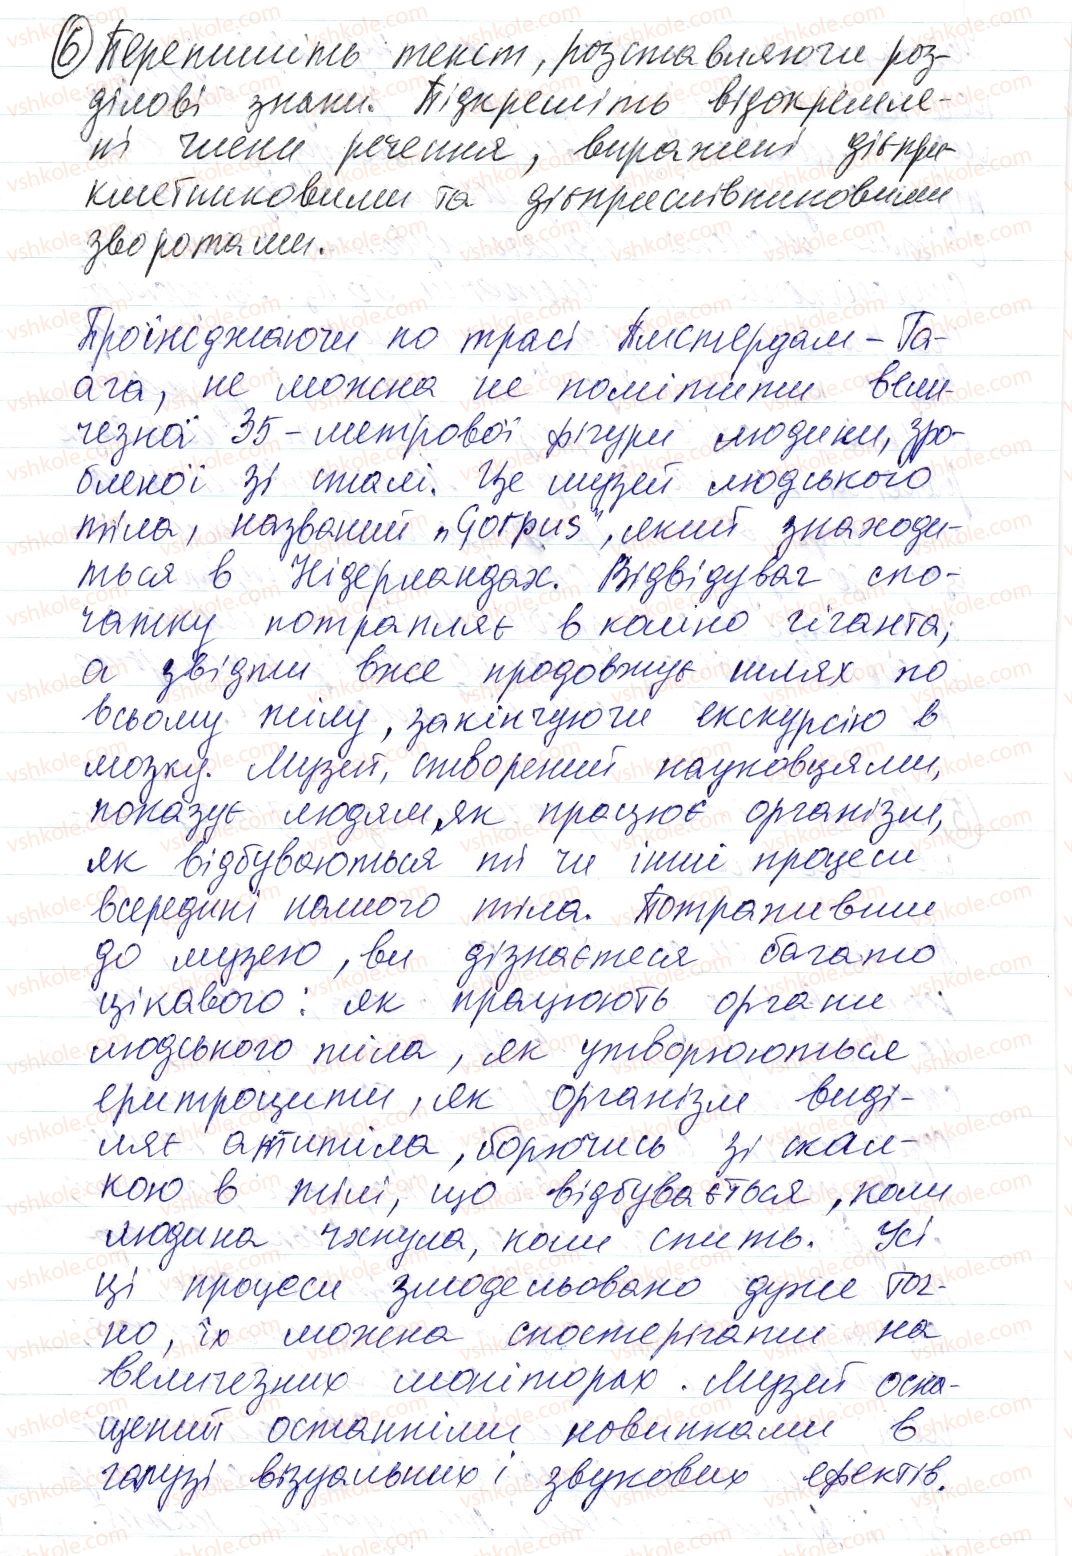 6 Перепишіть текст, розставляючи роз-
ділові знаки. Підкресліть відокремле-
ні члени речення, виражені дієпри-
кметниковими та дієприслівниковими
зворотами.
Проїжджаючи по трасі Амстердам – Га-
ага, не можна не помітити вели-
чезної 35-метрової фігури людини, зро-
бленої зі сталі. Це музей людського
тіла, названий „Corpus", який знаходи-
ться в Нідерландах. Відвідувач спо-
чатку потрапляє в коліно гіганта,
а звідти вже продовжує шлях по
всьому тілу, закінчуючи екскурсію в
мозку. Музей, створений науковцями,
показує людям, як працює організм,
як відбуваються ті чи інші процеси
всередині нашого тіла. Потрапивши
до музею, ви дізнаєтеся багато
цікавого: як працюють органи
людського тіла, як утворюються
еритроцити, як організм виді-
ляє антитіла, борючись зі скал-
кою в тілі, що відбувається, коли
людина чхнула, коли спить. Усі
ці процеси змодельовано дуже точ-
но, їх можна спостерігати на
величезних моніторах. Музей осна-
щений останніми новинками в
галузі візуальних і звукових ефектів.